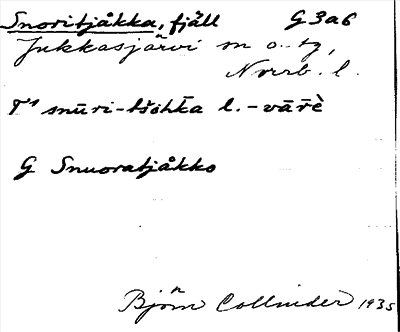 Snoritjåkka, fjäll G3a6
Jukkasjärvi sn o. tg,
Norrb. l.
snūri-tšohka l. -vārè
G Snuoratjåkko
Björn Collinder 1935